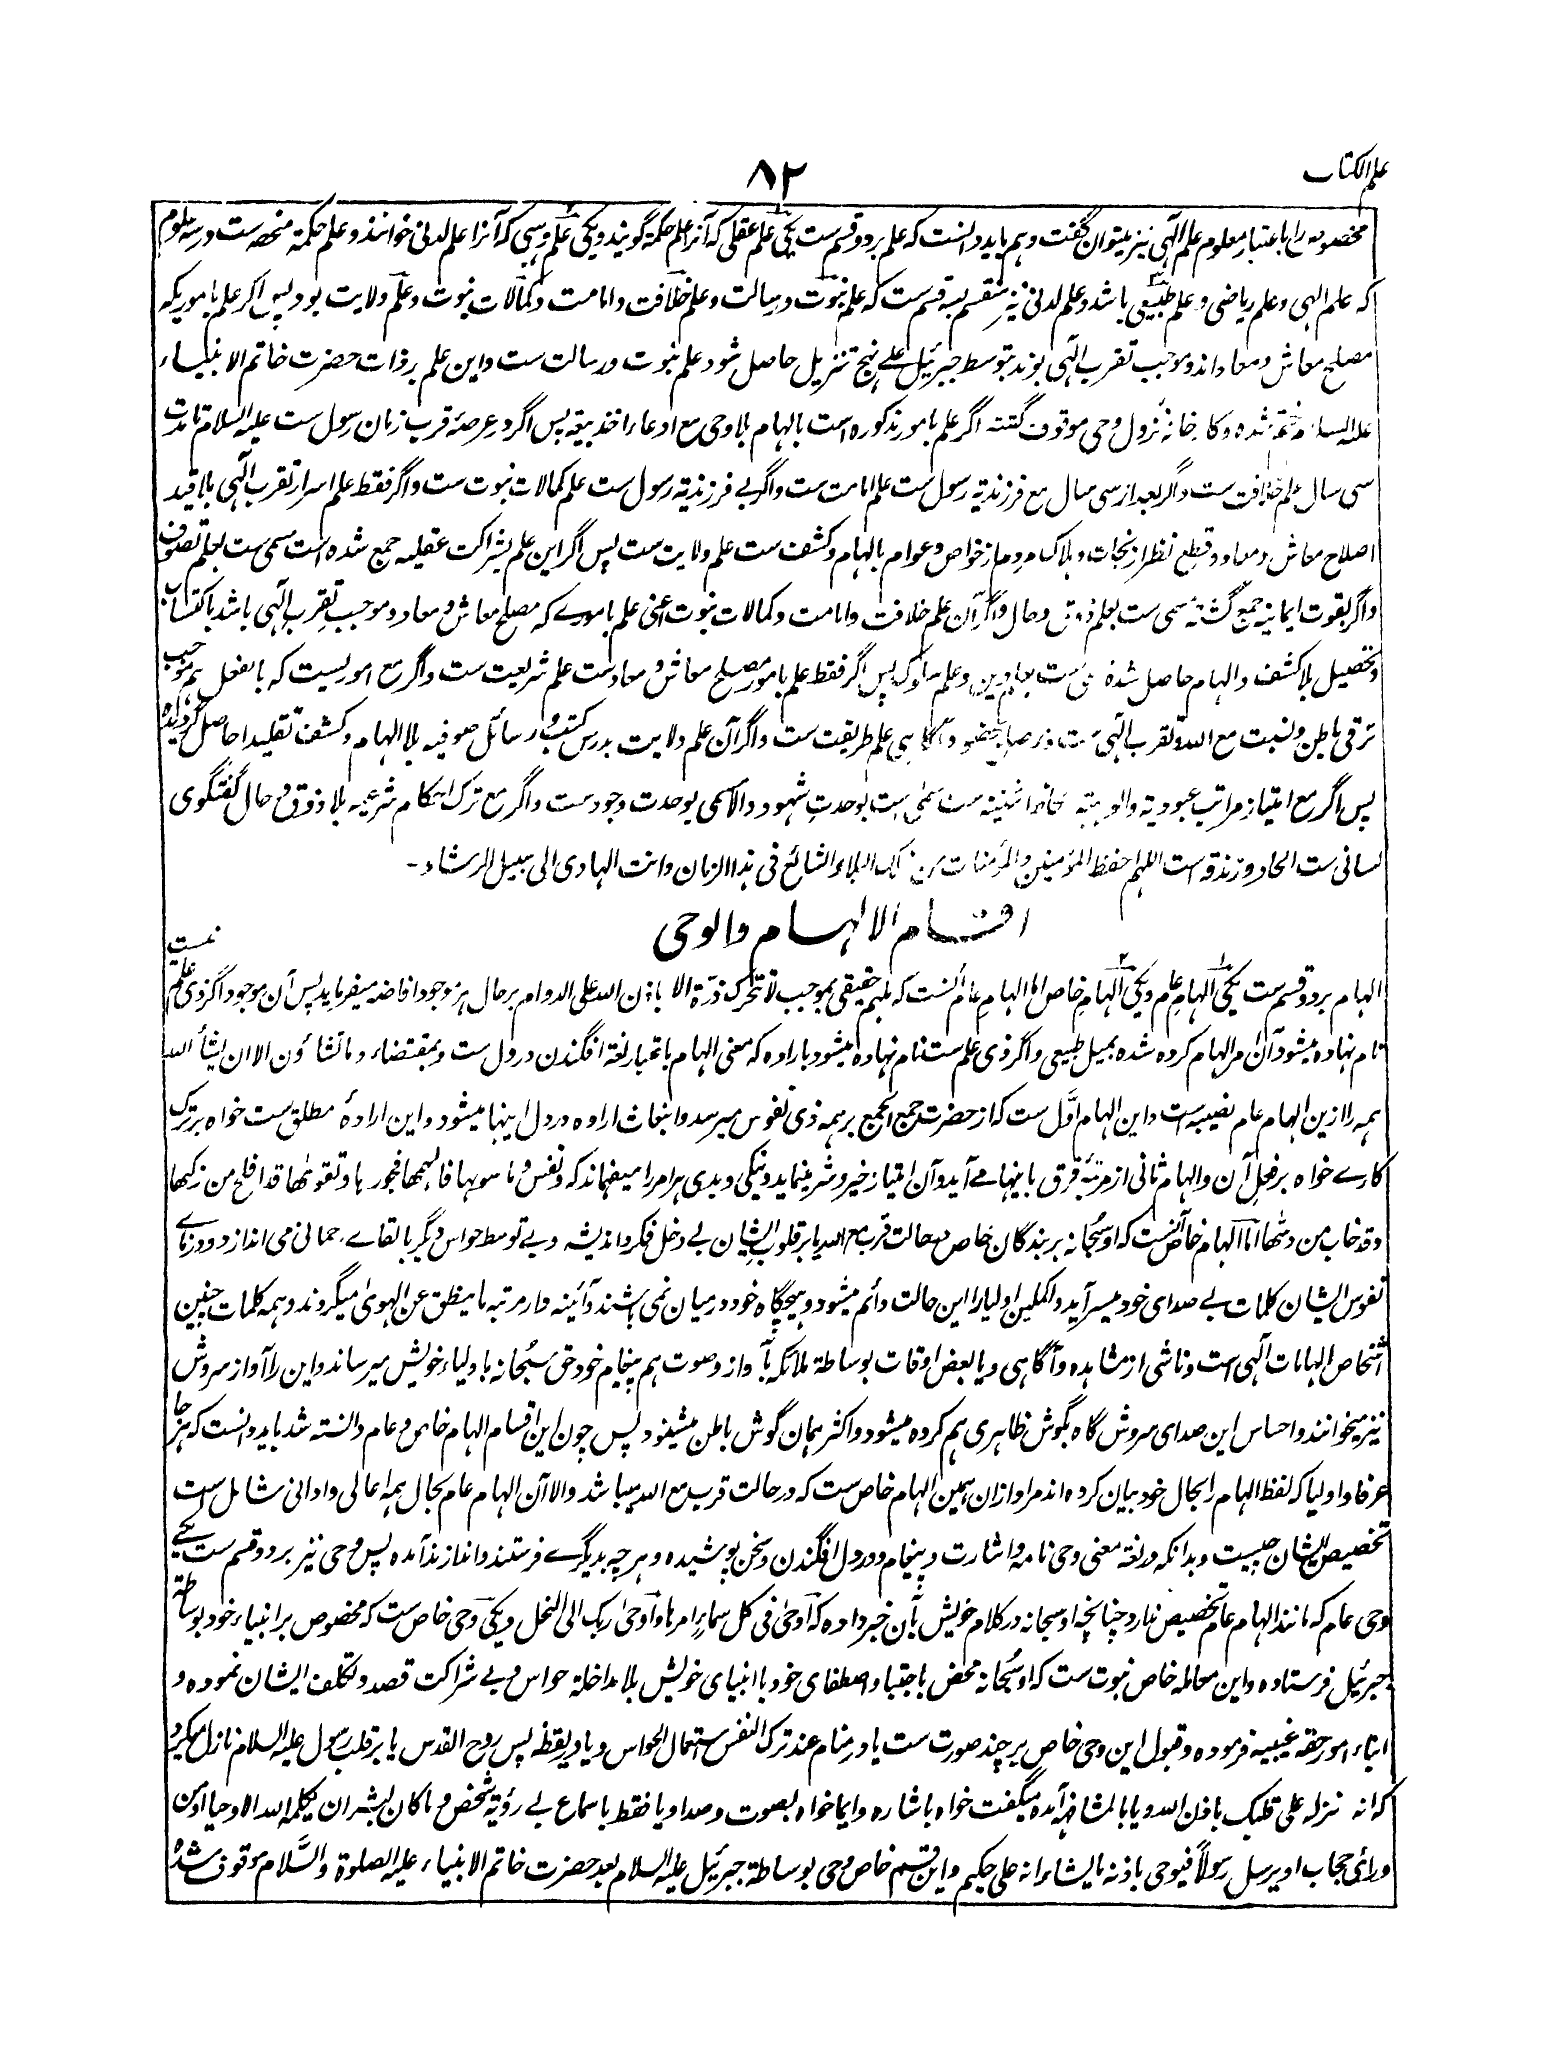 علم الکتاب
۸۲
مخصوصه را باعتبار معلوم علم الٓهی نیز میتوان گفت و هم باید دانست که علم بر دو قسم ست یکی علم عقلی که آنرا علم حکمة گویند و یکی علم وهبی که آنرا علم لدنی خوانند و علم حکمة منحصر ست در سه علوم
که علم الهی و علم ریاضی و علم طبیعی باشد و علم لدنی نیز منقسم بسه قسم ست که علم نبوت و رسالت و علم خلافت و امامت و کمالات نبوت و علم ولایت بود پس اگر علم بامور یکه
مصلح معاش و معاد اند و موجب تقرب الٓهی بوند بتوسط جبرئیل علے نهج تنزیل حاصل شود علم نبوت و رسالت ست و این علم بر ذات حضرت خاتم الانبیاء
علیه السلام ختم شده و کارخانۂ نزول وحی موقوف گشته اگر علم بامور مذکوره است بالهام بلا وحی مع ادعاء اخذ بیعة پس اگر در عرصۂ قرب زمان رسول ست علیه السلام تا مدت
سی سال علم خلافت ست و اگر بعد از سی سال مع فرزندیة رسول ست علم امامت ست و اگر بے فرزندیة رسول ست علم کمالات نبوت ست و اگر فقط علم اسرار تقرب الٓهی بلا قید
اصلاح معاش و معاد و قطع نظر از نجات و هلاک مردم از خواص و عوام بالهام و کشف ست علم ولایت ست پس اگر این علم بشراکت عقلیه جمع شده است مسمی ست بعلم تصوف
و اگر بقوت ایمانیه جمع گشته مسمی ست بعلم ذوق و حال و اگر آن علم خلافت و امامت و کمالات نبوت اعنی علم بامورے که مصلح معاش و معاد و موجب تقرب الٓهی باشد باکتساب
و تحصیل بلا کشف و الهام حاصل شده مسمی ست بعلم دین و علم سلوک پس اگر فقط علم بامور مصلح معاش و معاد ست علم شریعت ست و اگر مع امور یست که بالفعل هم موجب
ترقی باطن و نسبت مع الله و تقرب الٓهی ست و حضور و آگاهی علم طریقت ست و اگر آن علم ولایت بدرس کتب و رسائل صوفیه بلا الهام و کشف تقلیدا حاصل گردیده
پس اگر مع امتیاز مراتب عبودیة و الوهیة ست مسمی ست بوحدت شهود و الا مسمی بوحدت وجود ست و اگر مع ترک احکام شرعیه بلا ذوق و حال گفتگوی
لسانی ست الحاد و زندقه است اللهم احفظ المؤمنین و المؤمنات من ذلک البلاء الشائع فی هذا الزمان و انت الهادی الی سبیل الرشاد ـ
اقسام الالهام والوحی
الهام بر دو قسم ست یکی الهام عام و یکی الهام خاص اما الهام عام آنست که ملهم حقیقی بموجب لا تتحرک ذرة الا باذن الله علی الدوام بر حال هر موجود افاضه میفرماید پس آن موجود اگر ذی علم نیست
نام نهاده میشود آن امر الهام کرده شده بمیل طبیعی و اگر ذی علم ست نام نهاده میشود باراده که معنی الهام باعتبار لغة افگندن در دل ست و بمقتضاء و ما تشاؤن الا ان یشأ الله
همه را ازین الهام عام نصیب است و این الهام اوّل ست که از حضرت جمع الجمع بر همه ذی نفوس میرسد و انبعاث اراده در دل اینها میشود و این ارادۂ مطلق ست خواه بر ترک
کارے خواه بر فعل آن و الهام ثانی از مرتبۂ فرق باینها مے آید و آن امتیاز خیر و شر مینماید و نیکی و بدی هر امر را میفهماند که و نفس و ما سوٰها فالهمها فجورها و تقوٰها قد افلح من زکٰها
و قد خاب من دسٰها اما الهام خاص آنست که او سبحانه بر بندگان خاص در حالت قرب مع الله یا بر قلوب ایشان بے دخل فکر و اندیشه و بے توسط حواس دیگر بالقاے رحمانی می اندازد و در زبانهاے
نفوس ایشان کلمات بے صدای خود میسر آید و اکملین اولیا را این حالت دائم میشود و هیچگاه خود در میان نمی باشند و آئینه وار مرتبه ما ینطق عن الهوٰی میگردند و همه کلمات چنین
اشخاص الهامات الٓهی است و ناشی از مشاهده و آگاهی و یا بعض اوقات بوساطة ملائکه بآواز و صوت هم پیغام خود حق سبحانه باولیاء خویش میرساند و این را آواز سروش
نیز میخوانند و احساس این صدای سروش گاه بگوش ظاهری هم کرده میشود و اکثر بهمان گوش باطن میشنود پس چون این اقسام الهام خاص و عام دانسته شد باید دانست که هر جا
عرفا و اولیا که لفظ الهام را بحال خود بیان کرده اند مراد ازان همین الهام خاص ست که در حالت قرب مع الله میباشد و الا آن الهام عام بحال همه اعالی و ادانی شامل ست
تخصیص ایشان چیست و بدانکه در لغة معنی وحی نامه و اشارت و پیغام و در دل افگندن و سخن پوشیده و هر چه بدیگرے فرستند و اندازند آمده پس وحی نیز بر دو قسم ست یکے
وحی عام که مانند الهام عام تخصیص ندارد چنانچه او سبحانه در کلام خویش بآن خبر داده که اوحٰی فی کل سماءٍ امرها و اوحٰی ربک الی النحل و یکی وحی خاص ست که مخصوص بر انبیاء خود بوساطة
جبرئیل فرستاده و این معامله خاص نبوت ست که او سبحانه محض باجتبا و اصطفای خود با انبیای خویش بلا مداخلة حواس و بے شراکت قصد و تکلف ایشان نموده و
انباء امور حقه غیبیه فرموده و قبول این وحی خاص بر چند صورت ست یا در منام عند ترک النفس استعمال الحواس و یا در یقظه پس روح القدس یا بر قلب رسول علیه السلام نازل میکرد
که انه نزله علی قلبک باذن الله و یا بالمشافهة آمده میگفت خواه باشاره و ایما خواه بصوت و صدا و یا فقط باسماع بے رؤیة شخص و ما کان لبشر ان یکلمه الله الا وحیا او من
ورائ حجاب او یرسل رسولاً فیوحی باذنه ما یشاء انه علی حکیم و این قسم خاص وحی بوساطة جبرئیل علیه السلام بعد حضرت خاتم الانبیاء علیه الصلوة و السَّلام موقوف شده